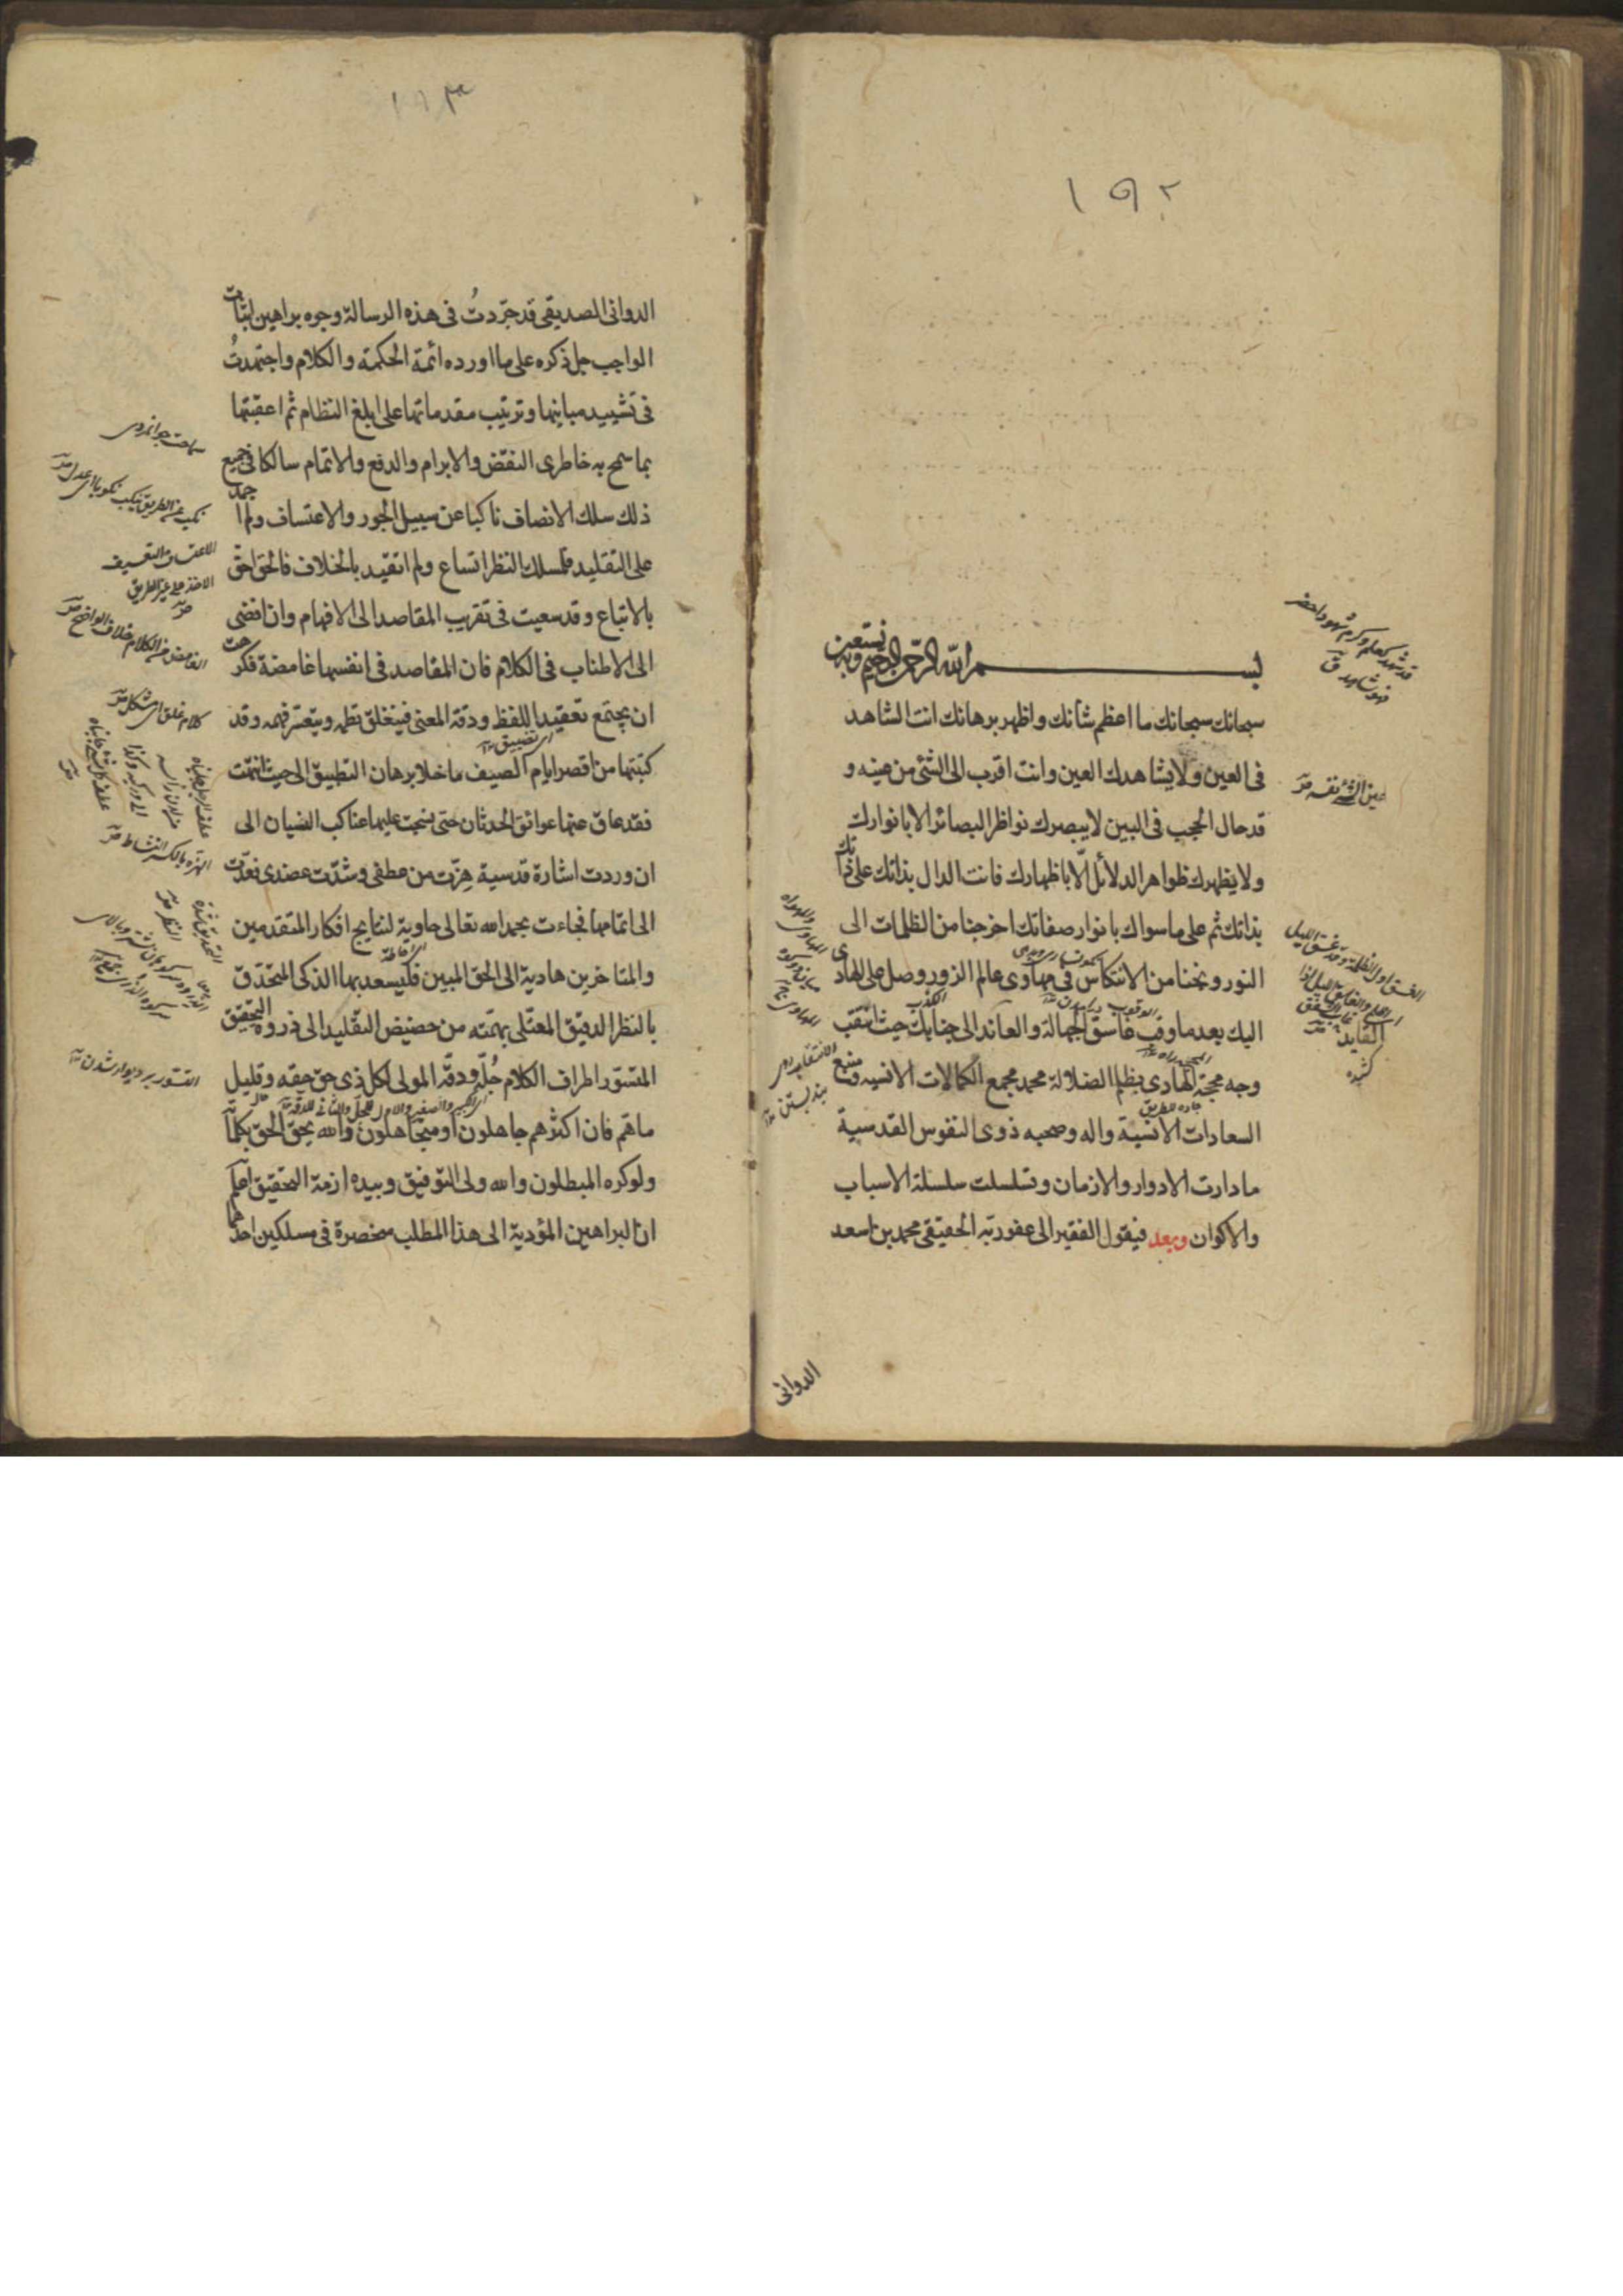 ١٩٢
بسم الله الرحمن الرحيم وبه نستعين
سبحانك سبحانك ما اعظم شانك واظهر برهانك انت الشاهد
فى العين ولا يشاهدك العين وانت اقرب الى الشئ من عينه و
قد حال الحجب فى البين لا يبصرك نواظر البصائر الا بانوارك
ولا يظهرك ظواهر الدلائل الّا باظهارك فانت الدال بذاتك على ذاتك
بذاتك ثم على ما سواك بانوار صفاتك اخرجنا من الظلمات الى
النور ونجنا من الانتكاس فى مهاوى عالم الزور وصل على الهادى
اليك بعد ما وقب غاسق الجهالة والعاند الى جنابك حيث انتقب
وجه محجة الهادى بظلم الضلالة محمد مجمع الكمالات الانسيه ومنبع
السعادات الانسية واله وصحبه ذوى النفوس القدسية
ما دارت الادوار والازمان وتسلسلت سلسلة الاسباب
والاكوان وبعد فيقول الفقير الى عفو ربّه الحقيقى محمد بن اسعد
الدوانى
قد شهد كعلم وكرم شهودا حضر
فهو شاهد ق
عين الشئ نفسه
الغسق اول الظلمة وقد غسق الليل
القايد كشنده
١٨٣
الدوانى الصديقى قد جرّدتُ فى هذه الرسالة وجوه براهين اثبات
الواجب جل ذكره على ما اورده ائمة الحكمة والكلام واجتهدتُ
فى تشييد مبانيها وترتيب مقدماتها على ابلغ النظام ثم اعقبتها
بما سمح به خاطرى النقض والابرام والدفع والاتمام سالكا فى جميع
ذلك سلك الانصاف ناكبا عن سبيل الجور والاعتساف ولم اجمد
على التقليد فلمسلك النظر اتساع ولم اتقيد بالخلاف فالحق احق
بالاتباع وقد سعيت فى تقريب المقاصد الى الافهام وان افضى
الى الاطناب فى الكلام فان المقاصد فى انفسها غامضة فكرهت
ان يجتمع تعقيد اللفظ ودقة المعنى فينغلق نظمه ويتعسّر فهمه وقد
كتبتها من اقصر ايام الصيف ما خلا برهان التطبيق الى حيث انتهت
فقد عاق عنها عوائق الحدثان حتى نسجت عليها عناكب النسيان الى
ان وردت اشارة قدسية هزّت من عطفى وشدّت عضدى فعدت
الى اتمامها فجاءت بحمد الله تعالى حاوية لنتايج افكار المتقدمين
والمتاخرين هادية الى الحق المبين فليسعد بها الذكى المتحذق
بالنظر الدقيق المعتلى بهمّته من حضيض التقليد الى ذروة التحقيق
المتسوّر اطراف الكلام جُلّه ودقّه المولى لكل ذى حق حقه وقليل
ما هم فان اكثرهم جاهلون او متجاهلون والله يحق الحق بكلماته
ولو كره المبطلون والله ولى التوفيق وبيده ازمة التحقيق اعلم
ان البراهين المؤدية الى هذا المطلب منحصرة فى مسلكين احدهما
سماحت جوانمردى
نكب عن الطريق ينكب نكوبا اى عدل
الاعتساف التعسيف
الاخذ على غير الطريق
الغامض من الكلام خلاف الواضح
كلام غلق اى مشكل
الهزة بالكسر النشاط
التسور بر ديوار شدن